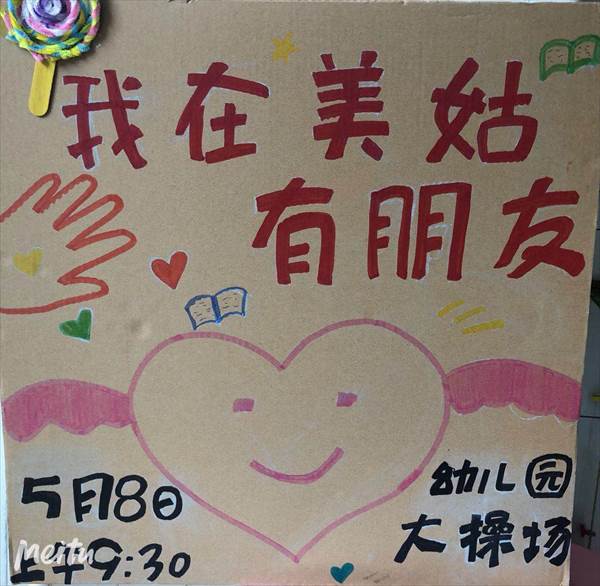 我在美姑
有朋友
5月8日
上午9:30
幼儿园
大操场
Meitu